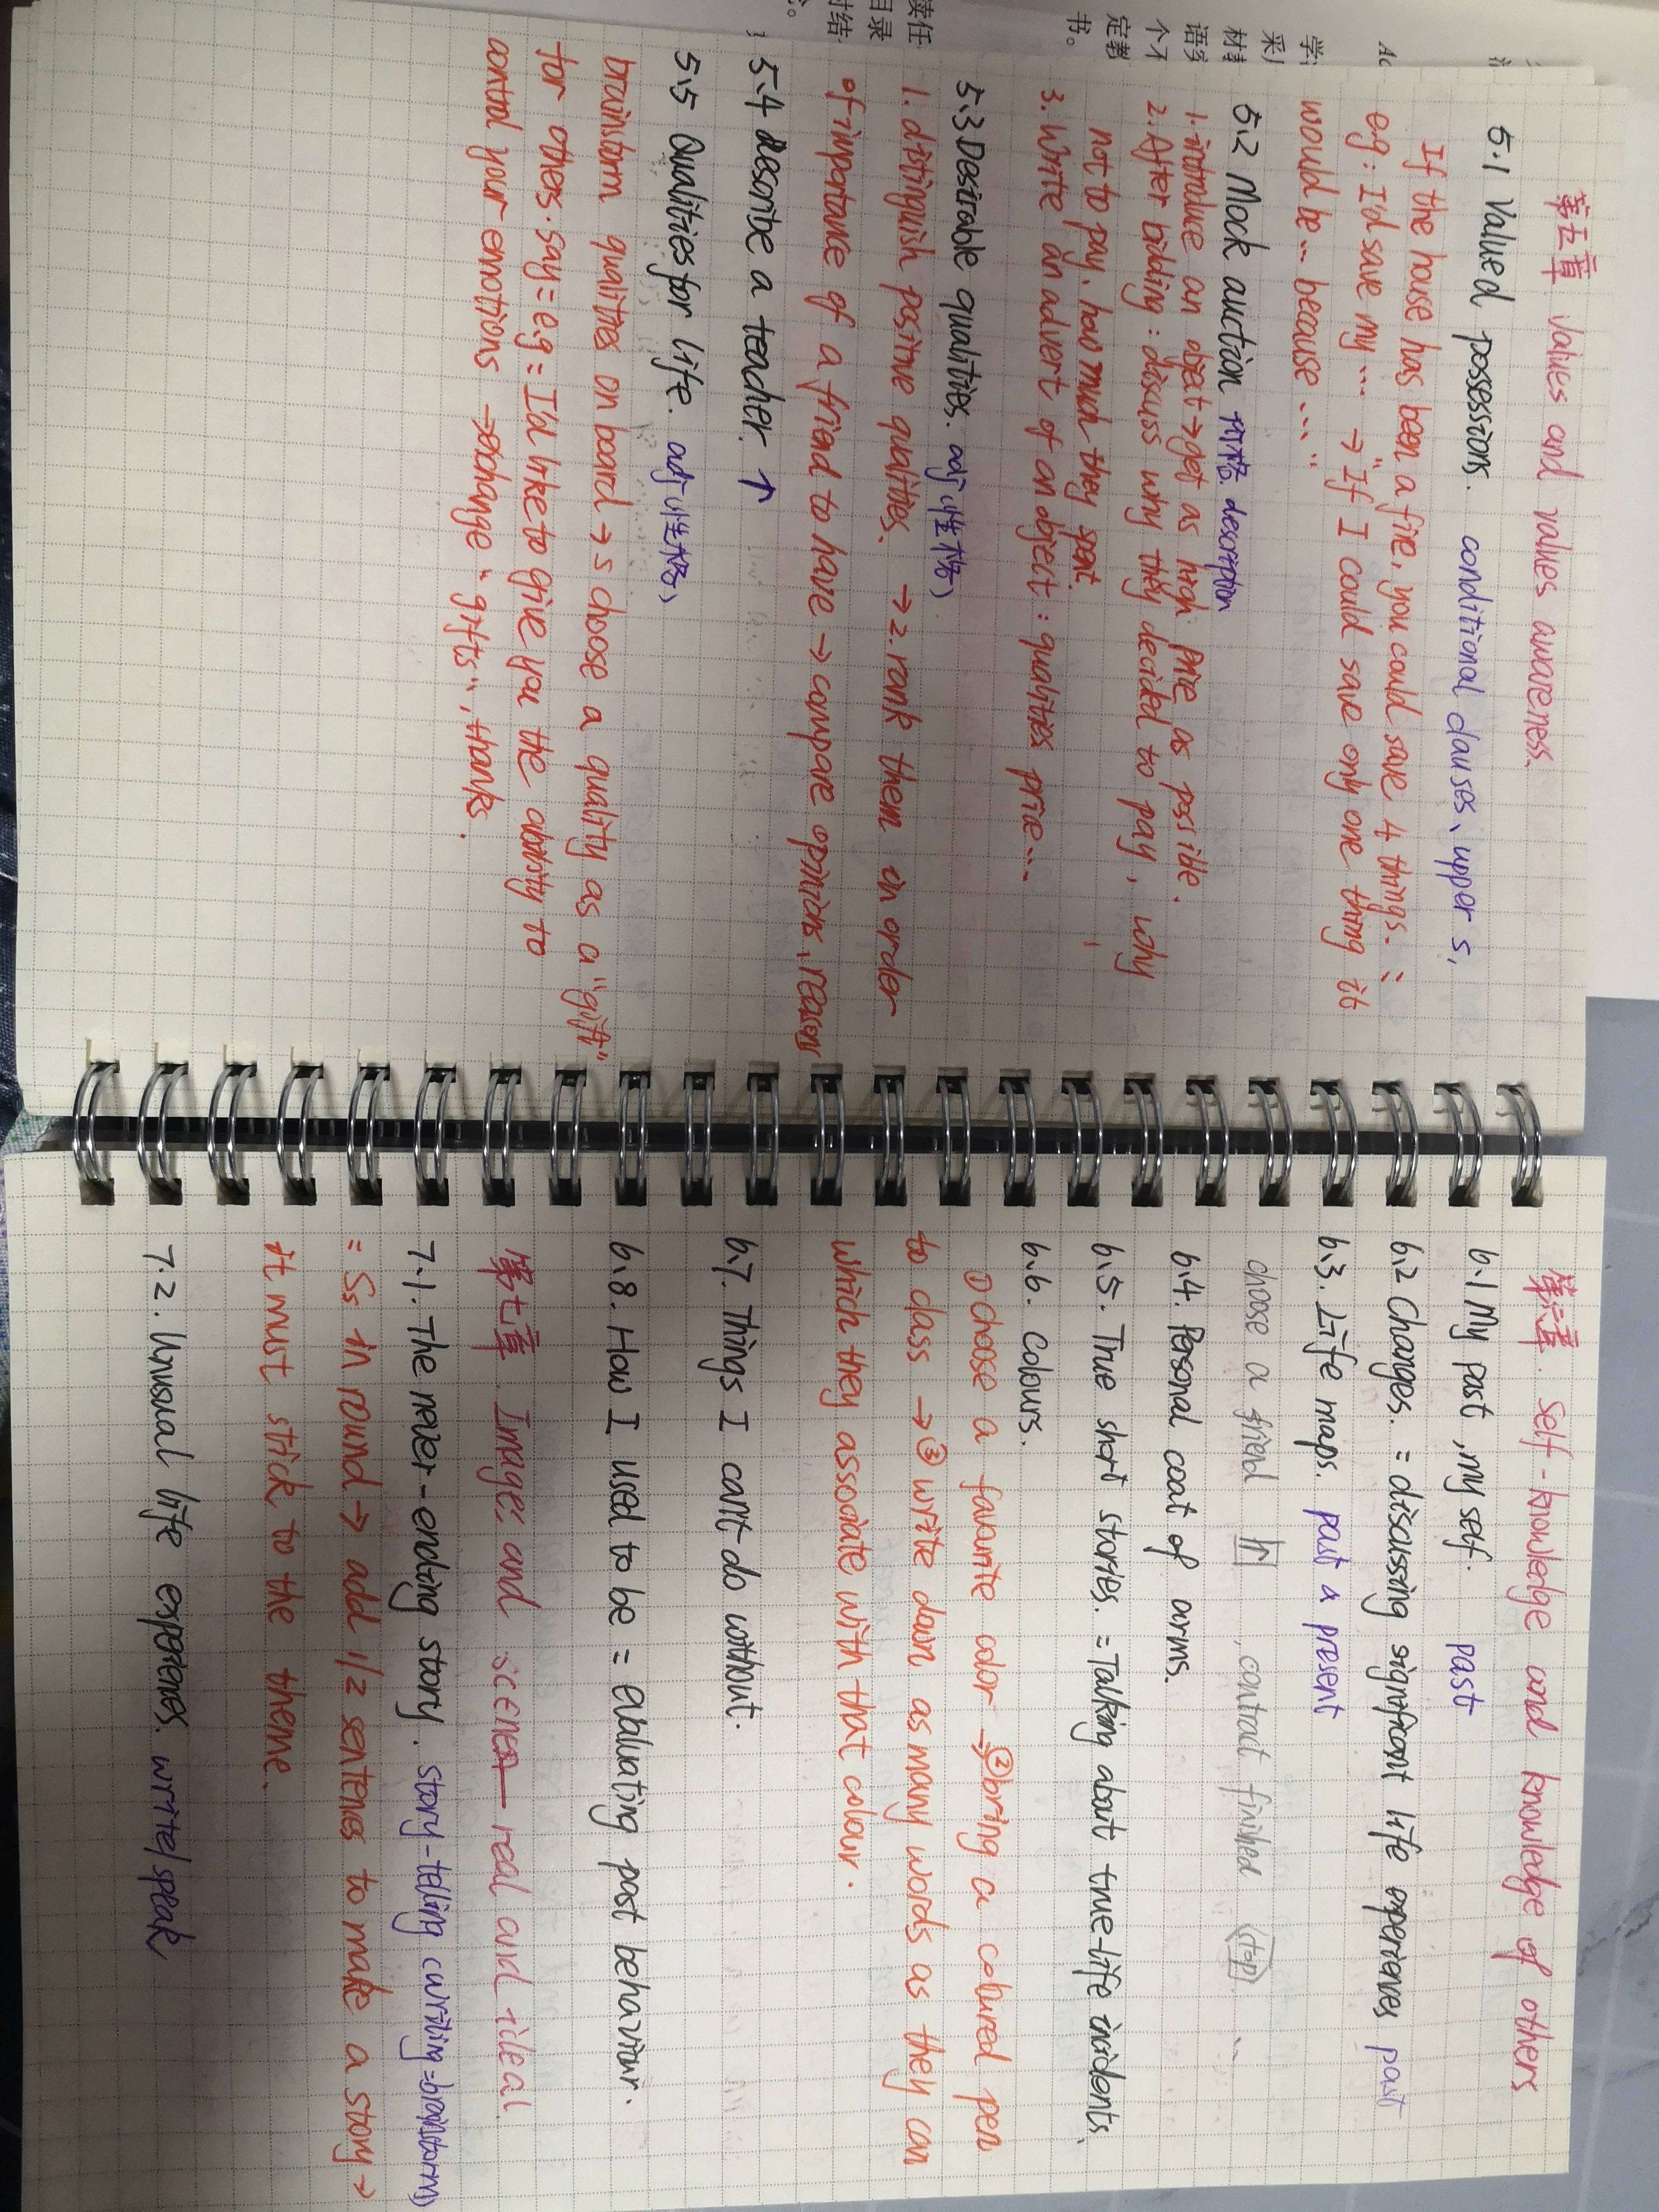 第五章 values and values awareness.
5.1 Valued possessions. conditional clauses、upper s,
If the house has been a fire, you could save 4 things.
eg: I'd save my ... → "If I could save only one thing it
would be ... because ...."
5.2 Mock auction 价格 description
1. introduce an object → get as high price as possible.
2. After bidding : discuss why they decided to pay, why
not to pay, how much they spent
3. write an advert of an object : qualities price...
5.3 Desirable qualities. adj (性格)
1. distinguish positive qualities. → 2. rank them in order
of importance of a friend to have → compare opinions、reasons
5.4 describe a teacher. ↑
5.5 Qualities for life. adj (性格)
brainstorm qualities on board → s choose a quality as a "gift"
for others. say = e.g = I'd like to give you the ability to
control your emotions → change "gifts", thanks.
第六章. self-knowledge and knowledge of others
6.1 My past, my self. past
6.2 Changes. = discussing significant life experiences past
6.3. Life maps. past & present
choose a friend , contact finished
6.4. Personal coat of arms.
6.5. True short stories. = Talking about true-life incidents.
6.6. Colours.
① choose a favourite color → ② bring a coloured pen
to class → ③ write down as many words as they can
which they associate with that colour.
6.7. Things I can't do without.
6.8. How I used to be = evaluating past behaviour.
第七章. Images and scenes — real and ideal.
7.1. The never-ending story. story-telling (writing = brainstorm)
= Ss in round → add 1/2 sentences to make a story →
it must stick to the theme.
7.2. Unusual life experiences. write/speak